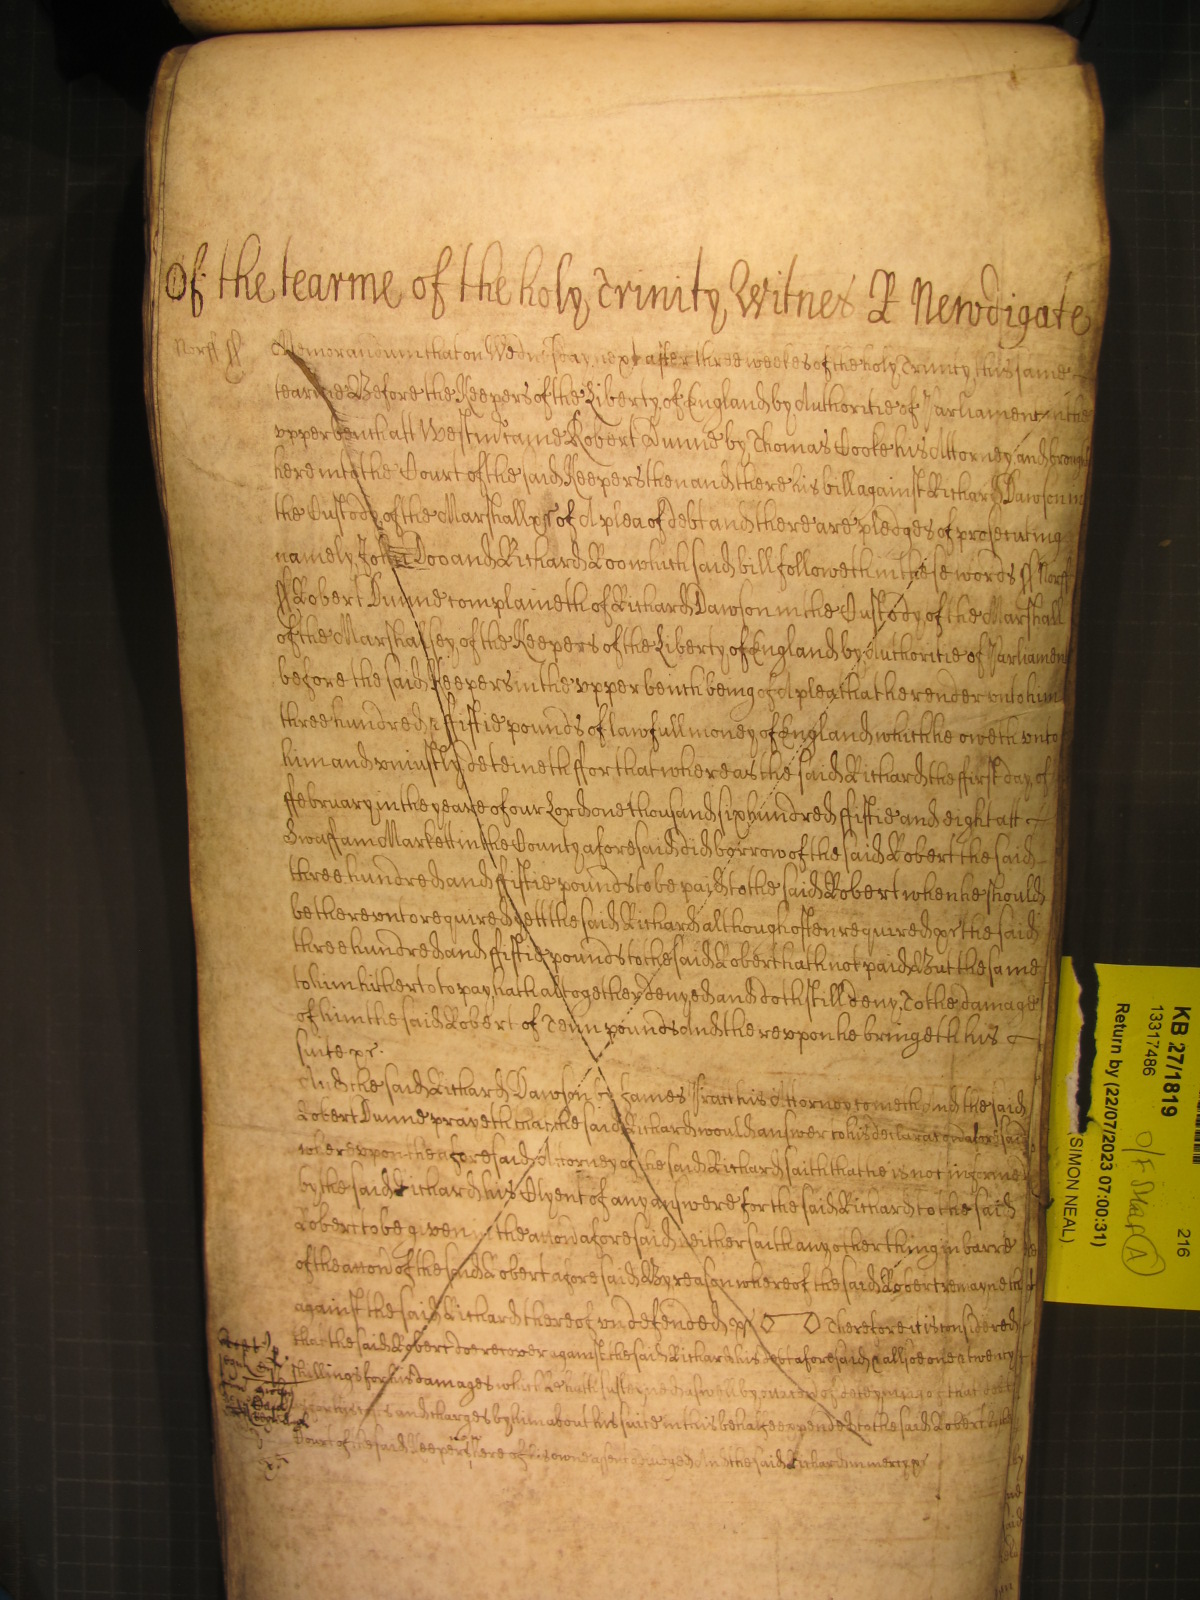 Of the tearme of the holy Trinity Witnes R Newdigate
Norff ss. Memorandum that on Wednesday next after three weekes of the holy Trinity this same
tearme Before the Keepers of the Liberty of England by Authoritie of Parliament in the
upper bench att Westm came Robert Dunne by Thomas Cooke his Attorney and brought
here into the Court of the said Keepers then and there his bill against Richard Dawson in
the Custody of the Marshall &c of A plea of debt and there are pledges of prosecuting
namely John Doo and Richard Roo which said bill followeth in these words ss Norff
ss Robert Dunne complaineth of Richard Dawson in the Custody of the Marshall
of the Marshalsey of the Keepers of the Liberty of England by Authoritie of Parliament
before the said Keepers in the upper bench being of A plea that he render unto him
three hundred & fiftie pounds of lawfull money of England which he oweth unto
him and uniustly deteineth ffor that whereas the said Richard the ffirst day of
ffebruary in the yeare of our Lord one thousand six hundred fiftie and eight att
Swaffam Markett in the County aforesaid did borrow of the said Robert the said
three hundred and fiftie pounds to be paid to the said Robert when he should
be thereunto required yett the said Richard although often required &c the said
three hundred and fiftie pounds to the said Robert hath not paid But the same
to him hitherto to pay hath altogether denyed and doth still deny To the damage
of him the said Robert of Tenn pounds And thereupon he bringeth his
suite &c.
And the said Richard Dawson by James Pratt his Attorney cometh And the said
Robert Dunne prayeth that the said Richard would answer to his declaracon aforesaid
whereupon the aforesaid Attorney of the said Richard saith that he is not informed
by the said Richard his Clyent of any answere for the said Richard to the said
Robert to be given in the accon aforesaid neither saith any other thing in barre
of the accon of the said Robert aforesaid By reason whereof the said Robert remayneth
against the said Richard thereof undefended &c Therefore it is considered
that the said Robert doe recover against the said Richard his debt aforesaid & allsoe one & twenty
shillings for his damages which he hath susteyned aswell by occacon of deteyning of that debt
as for his costs and charges by him about his suite in this behalfe expended to the said Robert by the
Court of the said Keepers now here of his owne assent adiudged And the said Richard in mercy &c
KB 27/1819
13317486
216
Return by (22/07/2023 07:00:31)
(SIMON NEAL)